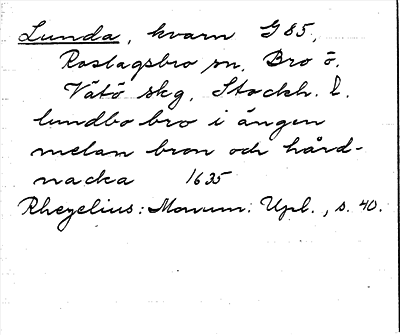 Lunda, kvarn G 85,
Roslagsbro sn. Bro ö.
Vätö skg, Stockh. l.
lundbo bro i ängen
melan bron och hård-
nacka 1635
Rhezelius: Monum. Upl., s. 40.